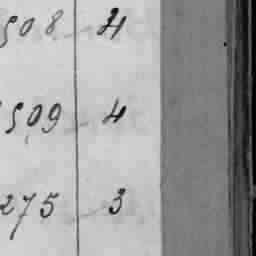 508 4
509 4
275 3